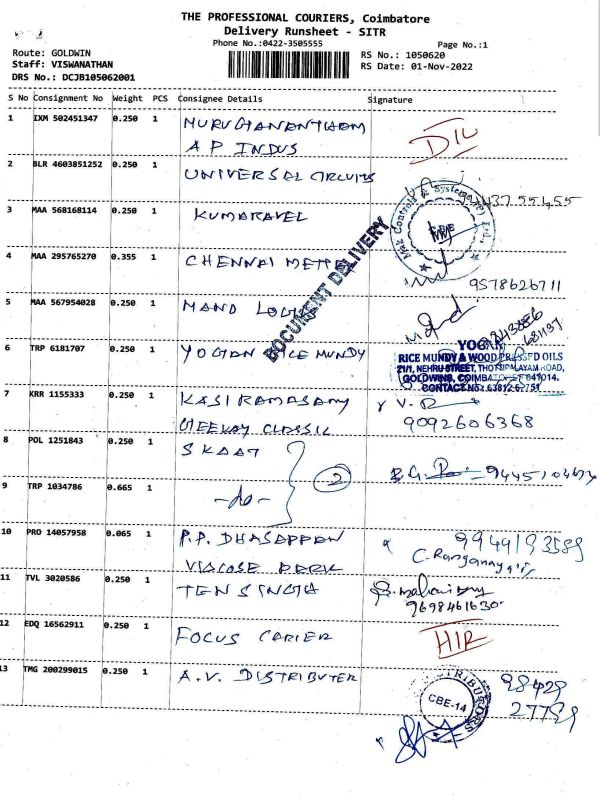 THE PROFESSIONAL COURIERS, Coimbatore
Delivery Runsheet - SITR
Phone No.:0422-3505555
Page No.:1
Route: GOLDWIN
Staff: VISWANATHAN
DRS No.: DCJB105062001
RS No.: 1050620
RS Date: 01-Nov-2022
S No Consignment No Weight PCS Consignee Details Signature
1 IXM 502451347 0.250 1 MURUGANANTHAM
A P INDUS
2 BLR 4603851252 0.250 1 UNIVERSAL CIRCUITS
3 MAA 568168114 0.250 1 KUMARAVEL
M&E Controls & Systems (P) Ltd.,
4 MAA 295765270 0.355 1 CHENNAI
9578626711
DOCUMENT DELIVERY
5 MAA 567954028 0.250 1 MANO
6 TRP 6181707 0.250 1 YOGAN RICE MUNDY
YOGAN
RICE MUNDY & WOOD PRESSED OILS
21/1, NEHRU STREET, THOTTIPALAYAM ROAD,
GOLDWINS, COIMBATORE 641014.
7 KRR 1155333 0.250 1 KASI RAMASAMY
GEEKAY CLASSIC
9092606368
8 POL 1251843 0.250 1
2
9 TRP 1034786 0.665 1 -do-
10 PRO 14057958 0.065 1 P.P. DHASAPPAN
9944193589
11 TVL 3020586 0.250 1 TEN SINGH
9698461630
12 EDQ 16562911 0.250 1 FOCUS CARIER
13 TMG 200299015 0.250 1 A.V. DISTRIBUTER
CBE-14
98429
27789